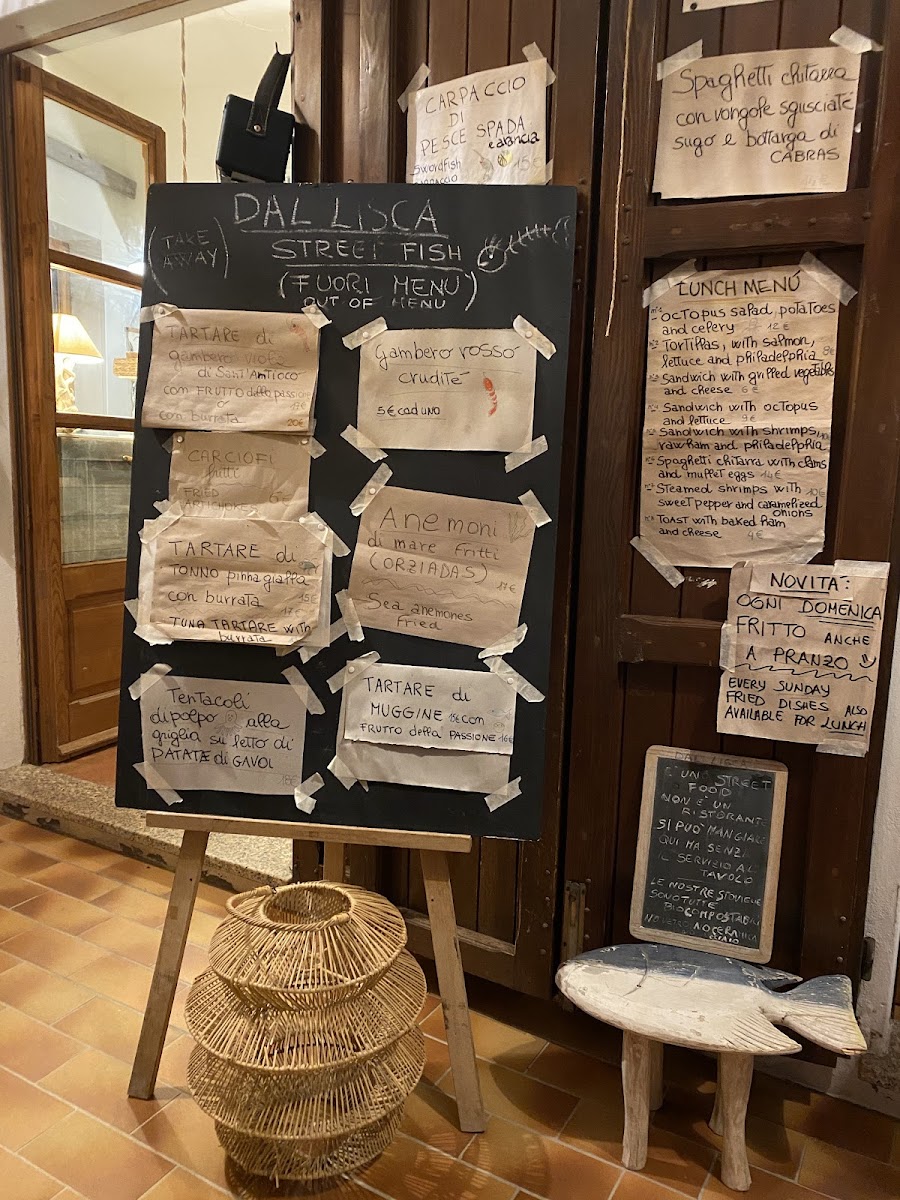 CARPACCIO
DI
PESCE SPADA
e arancia
Swordfish
15€
Spaghetti chitarra
con vongole sgusciate
sugo e bottarga di
CABRAS
DAL LISCA
(TAKE
AWAY)
STREET FISH
(FUORI MENÚ)
OUT OF MENU
TARTARE di
gambero viola
di Sant'Antioco
con FRUTTO della passione
o
con burrata 20€
Gambero rosso
crudité
5€ caduno
CARCIOFI
fritti
FRIED
ARTICHOKES
Anemoni
di mare fritti
(ORZIADAS)
17€
Sea anemones
Fried
TARTARE di
TONNO pinna gialla
con burrata 15€
17€
TUNA TARTARE with
burrata
Tentacoli
di polpo alla
griglia su letto di
PATATE di GAVOI
18€
TARTARE di
MUGGINE 15€ con
FRUTTO della PASSIONE 16€
LUNCH MENÚ
OCTOPUS salad, potatoes
and celery 12€
Tortillas, with salmon,
lettuce and philadelphia 8€
Sandwich with grilled vegetables
and cheese 6€
Sandwich with octopus
and lettuce 9€
Sandwich with shrimps,
raw ham and philadelphia
Spaghetti chitarra with clams
and mullet eggs 14€
Steamed shrimps with
sweet pepper and caramelized
onions
Toast with baked ham
and cheese 4€
NOVITA':
OGNI DOMENICA
FRITTO ANCHE
A PRANZO
EVERY SUNDAY
FRIED DISHES ALSO
AVAILABLE FOR LUNCH
DAL LISCA
E' UN STREET
FOOD
NON È UN
RISTORANTE
SI PUÒ MANGIARE
QUI MA SENZA
IL SERVIZIO AL
TAVOLO
LE NOSTRE STOVIGLIE
SONO TUTTE
BIOCOMPOSTABILI